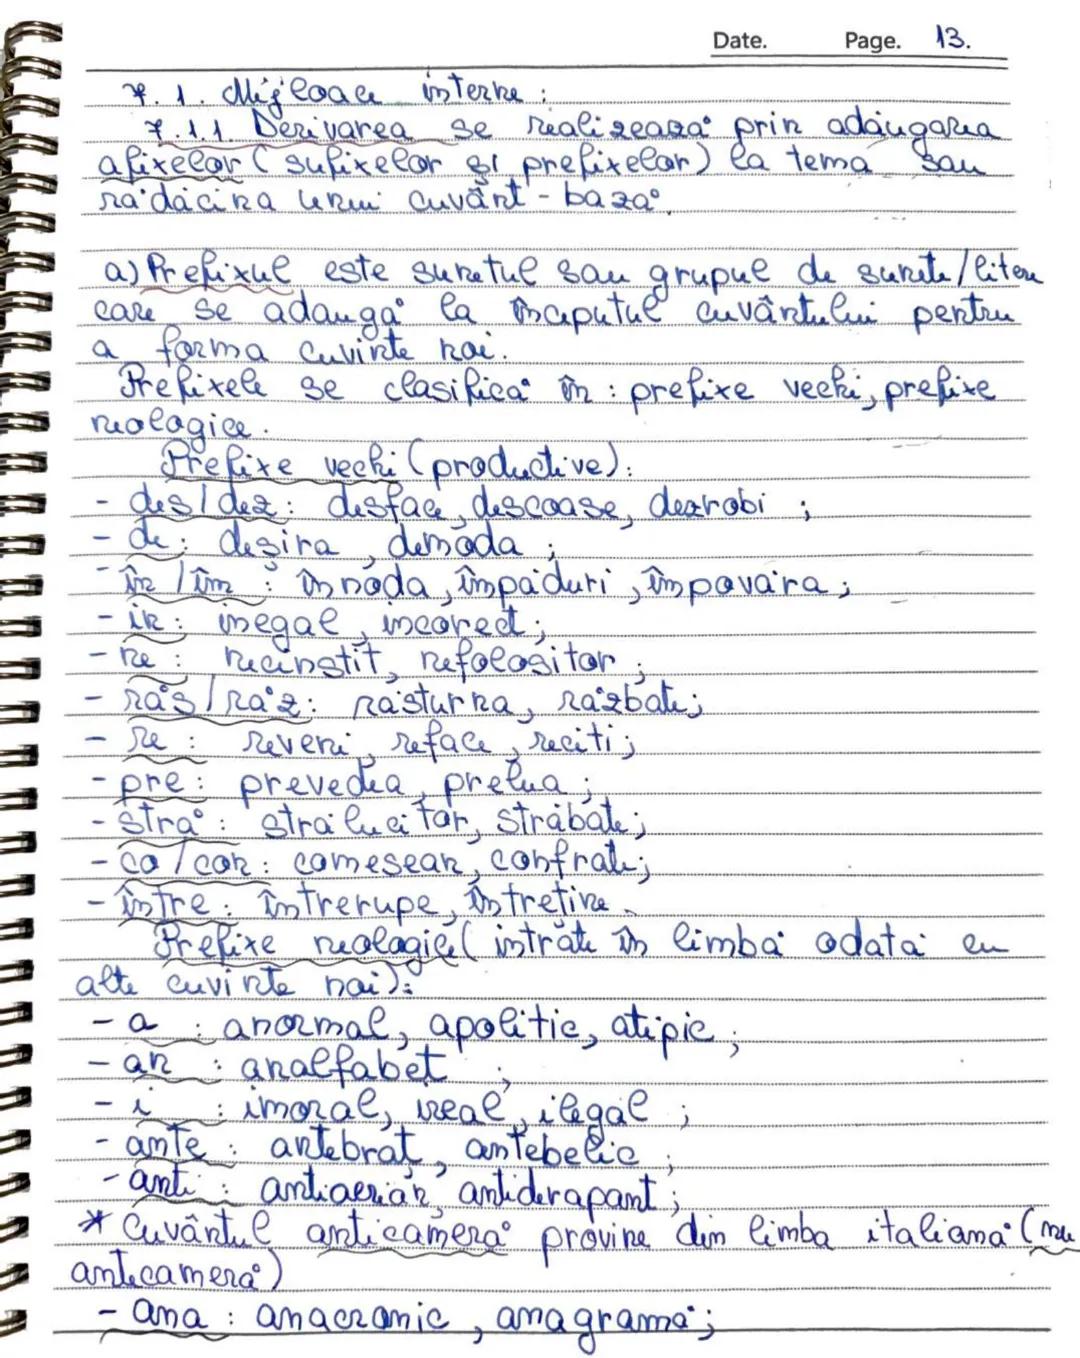 Date. Page. 13.
7.1. Mijloace interne:
7.1.1. Derivarea se realizează prin adăugarea
afixelor (sufixelor și prefixelor) la tema sau
rădăcina unui cuvânt-bază.
a) Prefixul este sunetul sau grupul de sunete/litere
care se adaugă la începutul cuvântului pentru
a forma cuvinte noi.
Prefixele se clasifică în: prefixe vechi, prefixe
neologice.
Prefixe vechi (productive):
- des/dez: desface, descoase, dezrobi;
- de: deșira, demoda;
- în/îm: înnoda, împăduri, împovăra;
- in: inegal, incorect;
- ne: necinstit, nefolositor;
- răs/răz: răsturna, răzbate;
- re: reveni, reface, reciti;
- pre: prevedea, prelua;
- stră: strălucitor, străbate;
- co/con: comesean, confrate;
- între: întrerupe, întreține.
Prefixe neologice (intrate în limbă odată cu
alte cuvinte noi):
- a: anormal, apolitic, atipic;
- an: analfabet;
- i: imoral, ireal, ilegal;
- ante: antebraț, antebelic;
- anti: antiaerian, antiderapant;
* Cuvântul anticameră provine din limba italiană (nu
antecameră)
- ana: anacronic, anagramă;